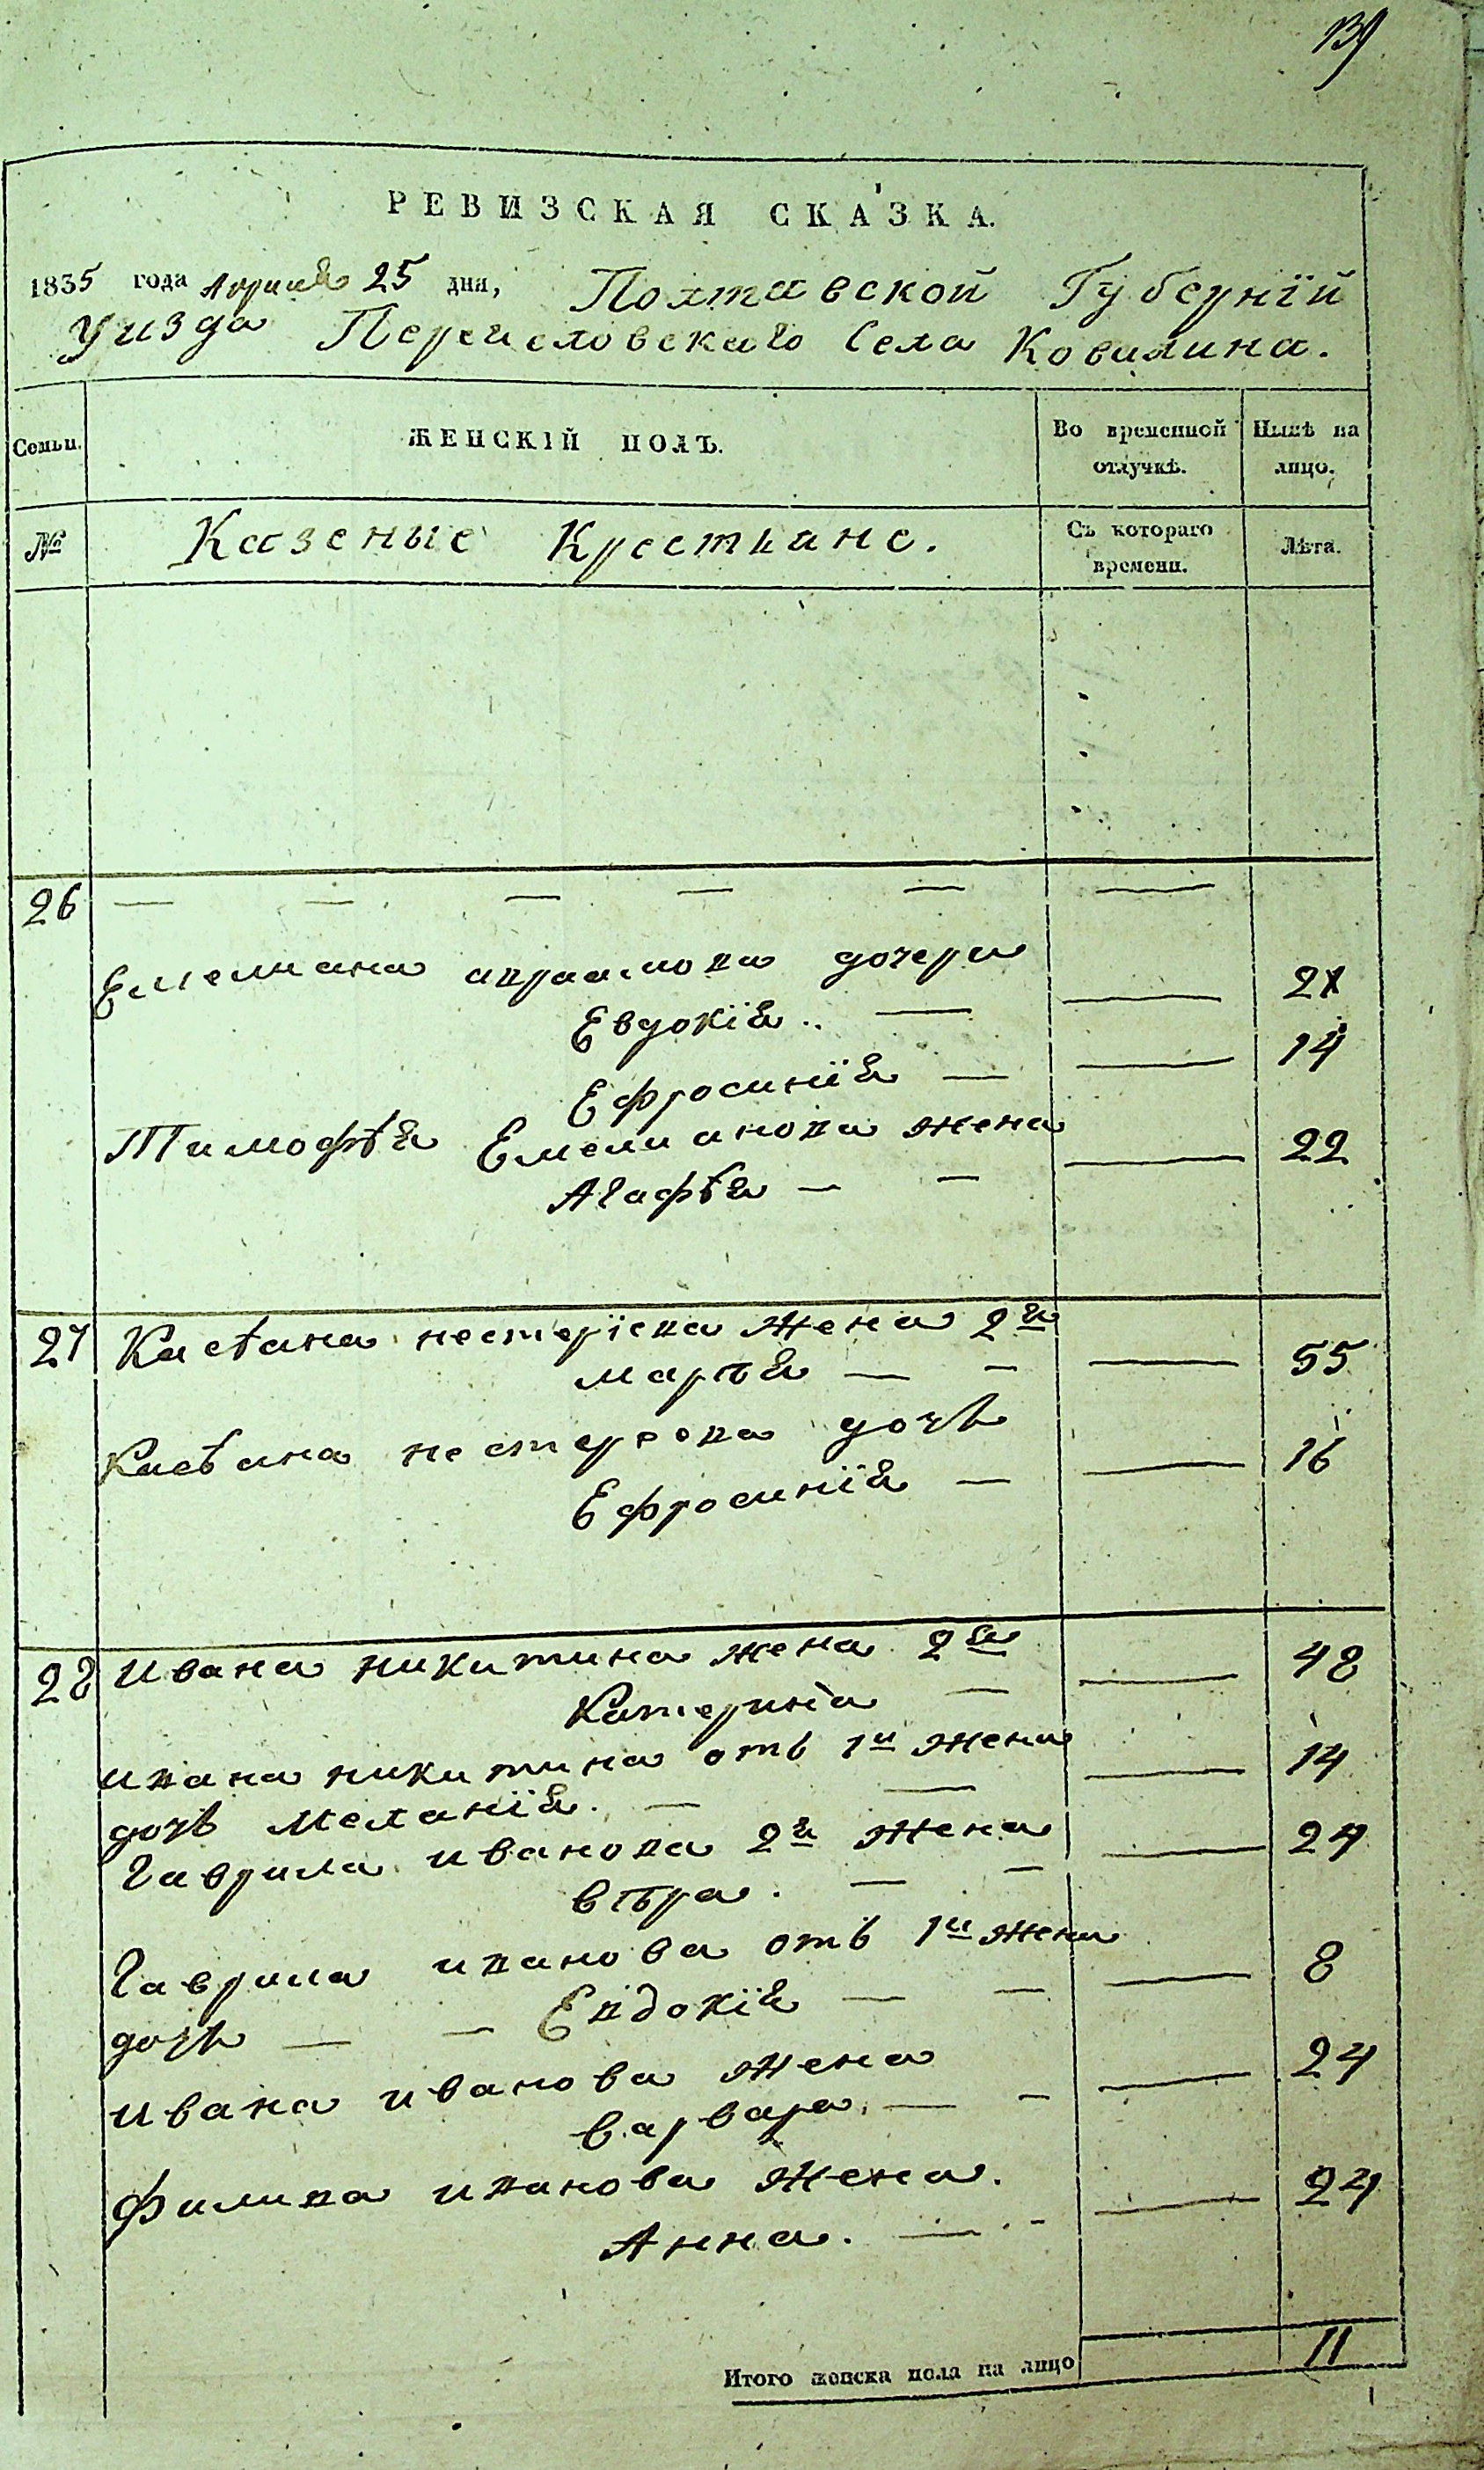 139
РЕВИЗСКАЯ СКАЗКА.
1835 года Априля 25 дня, Полтавской Губерніи
Уизда Переиеловскаго Села Ковалина.
Семьи. ЖЕНСКІЙ ПОЛЪ. Во временной отлучкѣ. Нынѣ на лицо.
№ Казеные Крестьяне. Съ котораго времени. Лѣта.
26 — — — — — —
Емелиана аврамова дочери
Евдокія .. — — 21
Ефросинія — — 14
Тимофѣя Емелианова жена
Агафѣя — — — 22
27 Касѣана нестерієва жена 2я
марѣя — — — 55
Касѣана нестерова дочь
Ефросинія — — 16
28 Ивана никитина жена 2я — 48
Катерина —
ивана никитина отъ 1й жени — 14
дочь Меланія. — —
Гаврила иванова 2я жена — 24
вѣра. — —
Гаврила иванова отъ 1й жени — 8
дочь — — Евдокія — —
Ивана иванова жена — 24
варвара. — -
Филипа иванова жена. — 24
Анна. — -
Итого женска пола на лицо 11